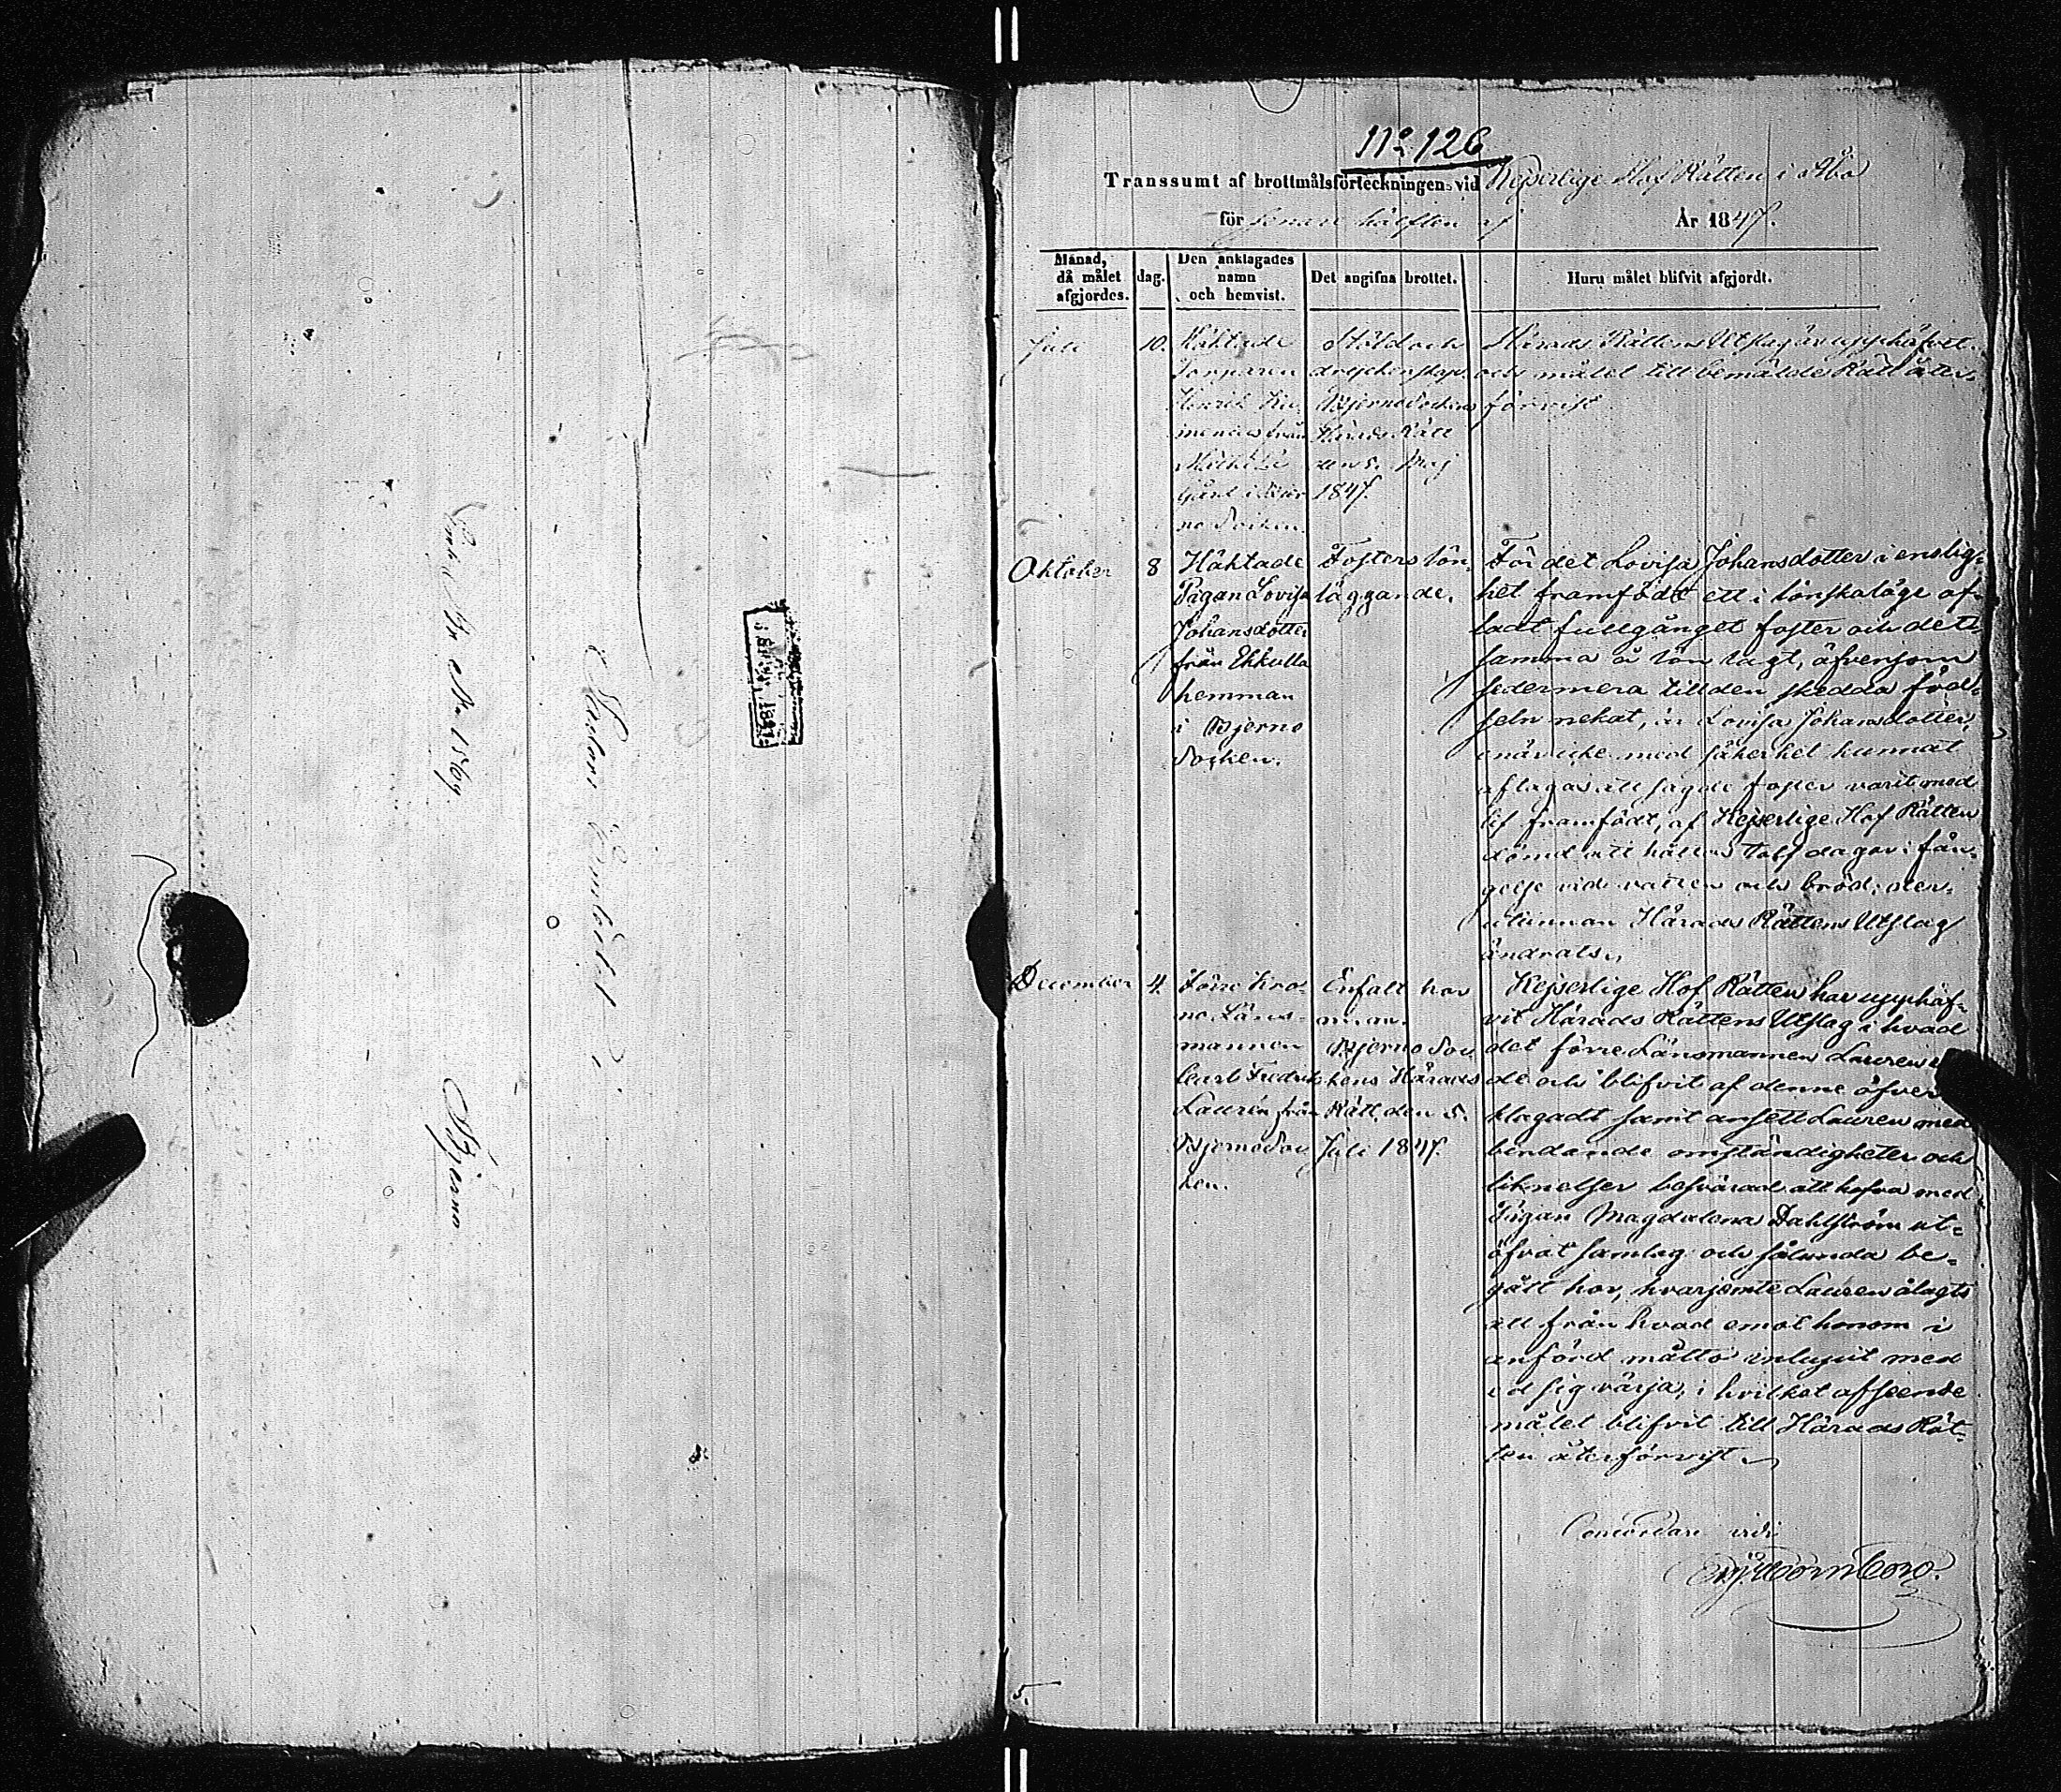 Bjerno
N:o 126
Transsumt af brottmålsförteckningen vid Kejserlige Hof Rätten i Åbo
för senare hälften af År 1847.
Månad, då målet afgjordes.
dag.
Den anklagades namn och hemvist.
Det angifna brottet.
Huru målet blifvit afgjordt.
Juli
10.
Häktade
Torparen
Henrik
från
gård i Bjer
no Socken.
Stöld och
dryckenskap.
Bjerno Sockens
Härads Rätt
den 5. Maj
1847.
Härads Rättens Utslag är upphäfvet
och målet till bemälde Rätt åter-
förvist
Oktober
8
Häktade
Pigan Lovisa
Johansdotter
från Ekkulla
hemman
i Bjerno
Socken.
Fosters lön
läggande.
För det Lovisa Johansdotter i enslig-
het framfödt ett i lönskaläge af-
ladt fullgånget foster och det-
samma å lön lagt, äfvensom
sedermera till den skedda föd-
seln nekat, är Lovisa Johansdotter,
enär icke med säkerhet kunnat
aftagas att sagde foster varit med
lif framfödt, af Kejserlige Hof Rätten
dömd att hållas tolf dagar i fän-
gelse vid vatten och bröd; der-
utinnan Härads Rättens Utslag
ändrats.
December
4.
Förre Kro-
no Läns-
mannen
Carl Fredrik
Laurén från
Bjerno Soc
ken.
Enfalt hor
Bjerno Soc
kens Härads
Rätt den 5.
Juli 1847.
Kejserlige Hof Rätten har upphäf-
vit Härads Rättens Utslag i hvad
det förre Länsmannen Lauren
de och blifvit af denne öfver
klagadt samt ansett Lauren med
bindande omständigheter och
liknelser besvärad att hafva med
Pigan Magdalena Dahlström ut-
öfvat samlag och sålunda be-
gått hor, hvarjemte Lauren ålagts
att från hvad emot honom i
anförd måtto inlupit med
ed sig värja, i hvilket afseende
målet blifvit till Härads Rät-
ten återförvist.
vidi
5.